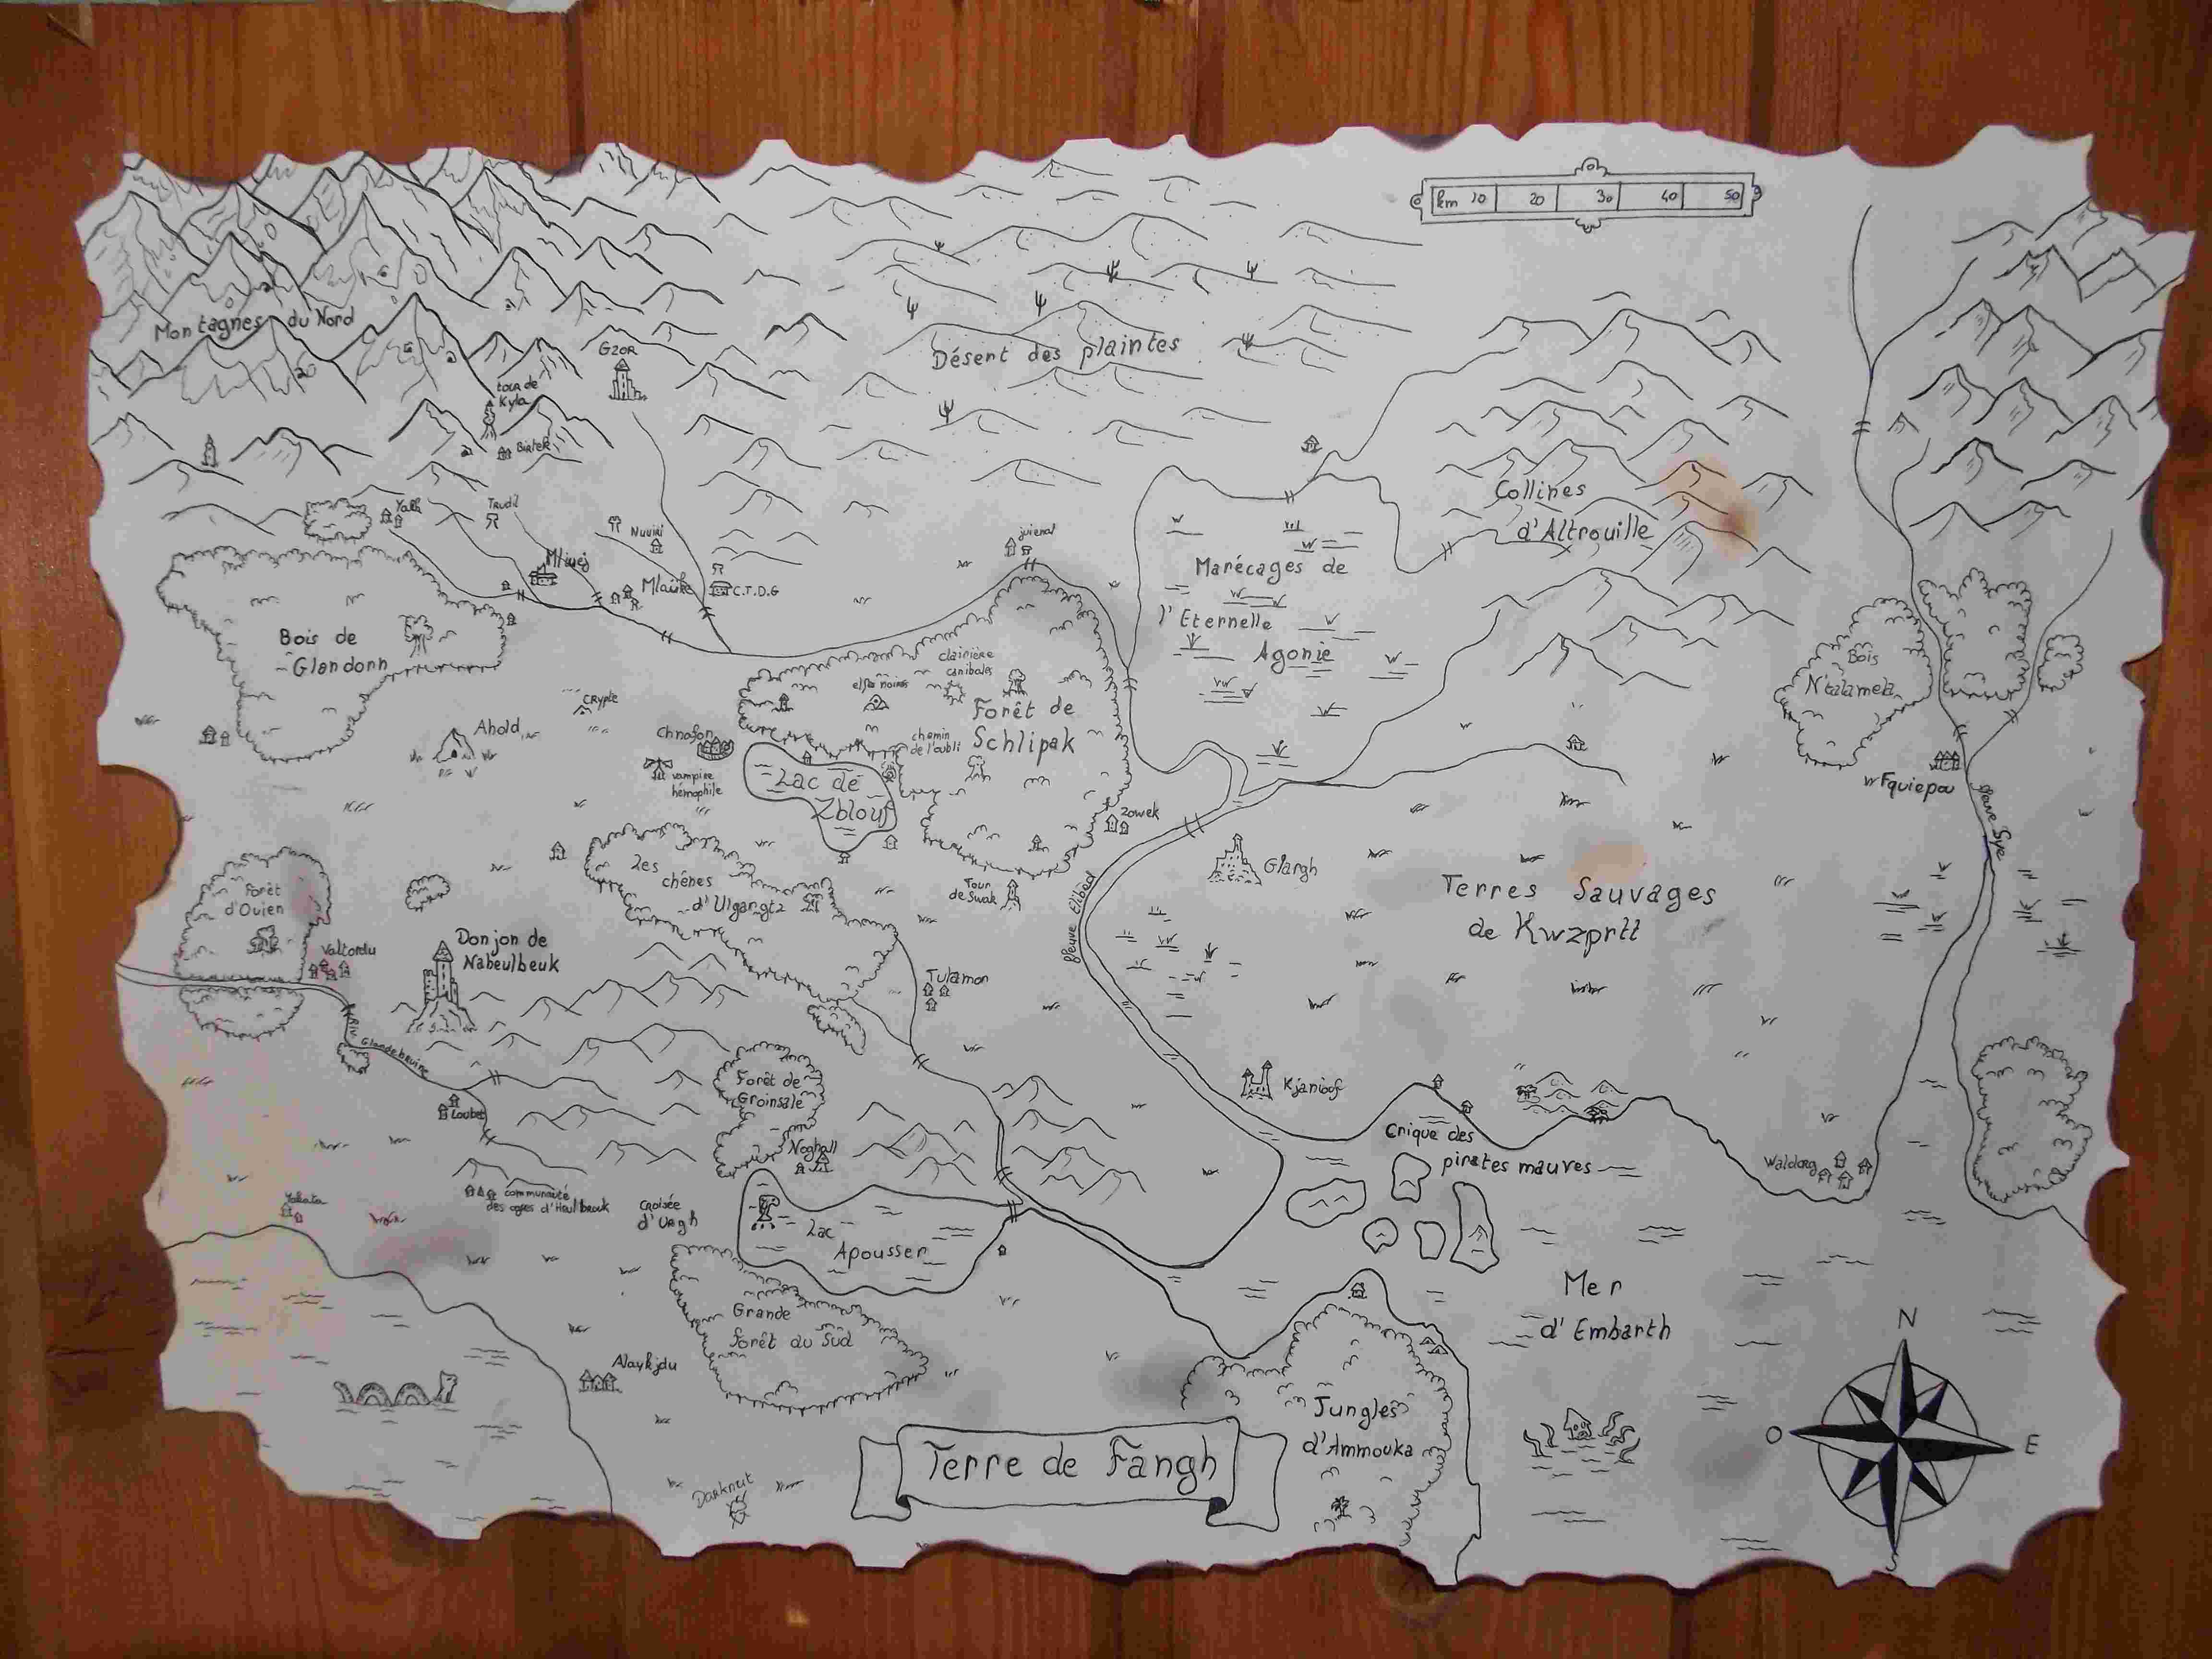 km 10 20 30 40 50
Montagnes du Nord
GZOR
Désert des plaintes
tour de
Kyla
Birtek
Collines
d'Altrouille
Yalk
Trudil
Nuviri
juienal
Mliuej
Mlaüke
C.T.D.G
Marécages de
l'Eternelle
Agonie
Bois de
Glandorn
clairière
canibales
elfes noires
Forêt de
Schlipak
chemin
de l'oubli
Bois
N'talamela
crypte
Ahold
Chnafon
vampire
hémophile
Lac de
Zblouf
wFquiepou
fleuve Sye
Zowek
Glargh
Les
chênes
d'Ulgargtz
Tour
de Swak
fleuve Elibed
Terres Sauvages
de Kwzprtt
Forêt
d'Ovien
Valtordu
Donjon de
Nabeulbeuk
Tulamor
Riv. Glandebruine
Loubet
Forêt de
Groinsale
Noghall
Kjanioof
Crique des
pirates mauves
Waldorg
communauté
des ogres d'Heulbeuk
Croisée
d'Urgh
Lac
Apousser
Mer
d'Embarth
Grande
forêt du Sud
Alaykjdu
Darknut
Terre de Fangh
Jungles
d'Ammouka
N
O
E
S